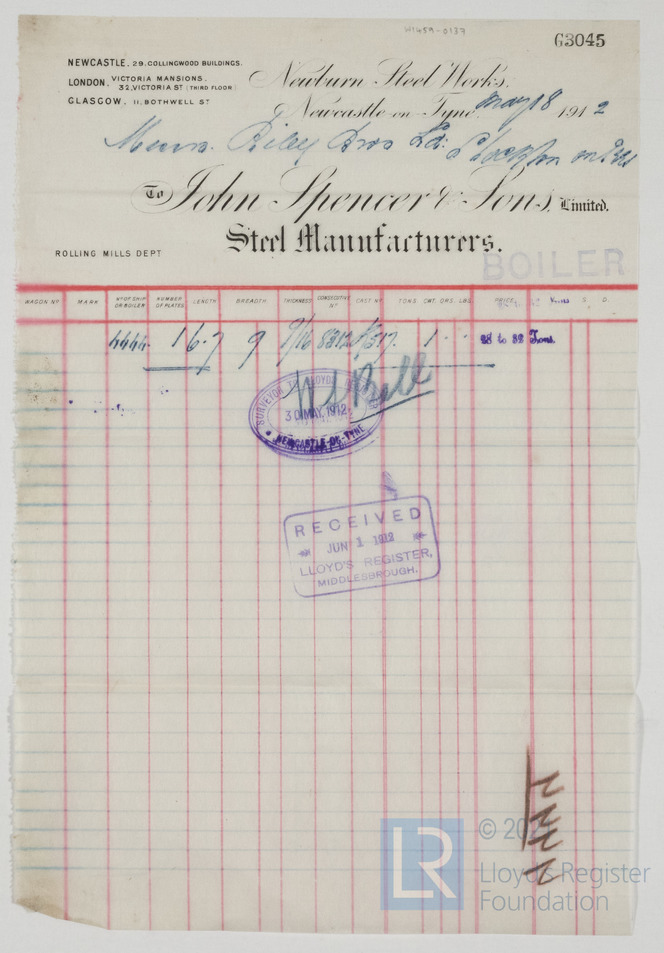 W1459-0137
63045
NEWCASTLE. 29. COLLINGWOOD BUILDINGS.
LONDON. VICTORIA MANSIONS. 32, VICTORIA ST (THIRD FLOOR)
GLASGOW. 11. BOTHWELL ST
Newburn Steel Works.
Newcastle-on-Tyne, May 18 1912
Messrs. Riley Bros Ld. Stockton on Tees
To John Spencer & Sons, Limited.
Steel Manufacturers.
ROLLING MILLS DEPT
BOILER
WAGON Nº MARK Nº OF SHIP OR BOILER NUMBER OF PLATES LENGTH BREADTH THICKNESS CONSECUTIVE Nº CAST Nº TONS CWT. QRS. LBS. PRICE S. D.
4444 1 6.7 9 9/16 1 28 to 32 Tons.
W Bell
SURVEYOR TO LLOYDS
30 MAY. 1912
NEWCASTLE-ON-TYNE
RECEIVED
JUN 1 1912
LLOYD'S REGISTER,
MIDDLESBROUGH.
4444
LR
© 20
Lloyd's Register
Foundation